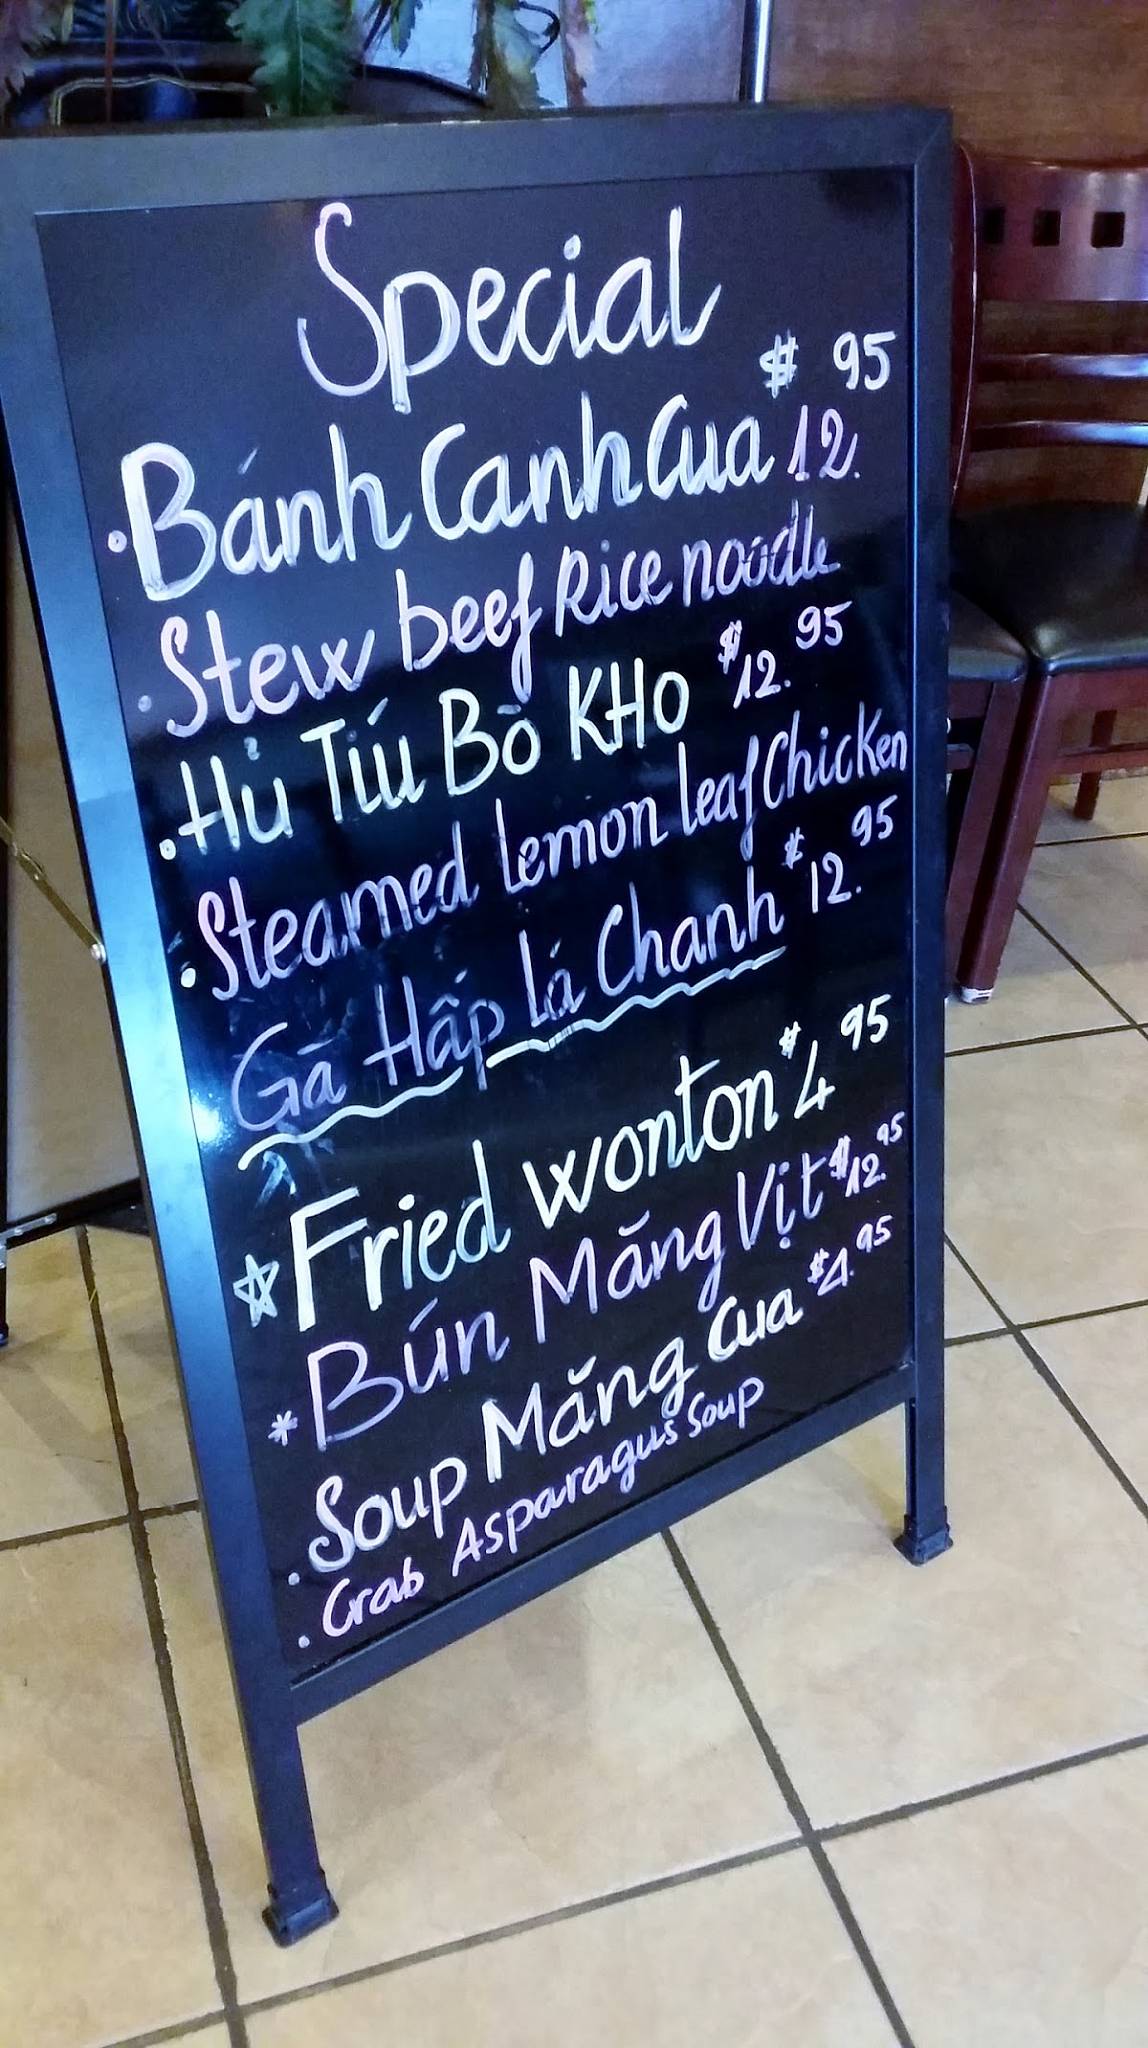 Special
· Bánh Canh Cua $12.95
· Stew beef Rice noodle
· Hủ Tíú Bò KHo $12.95
· Steamed lemon leaf Chicken
Gà Hấp Lá Chanh $12.95
☆ Fried wonton $4.95
* Bún Măng Vịt $12.95
· Soup Măng Cua $4.95
· Crab Asparagus Soup